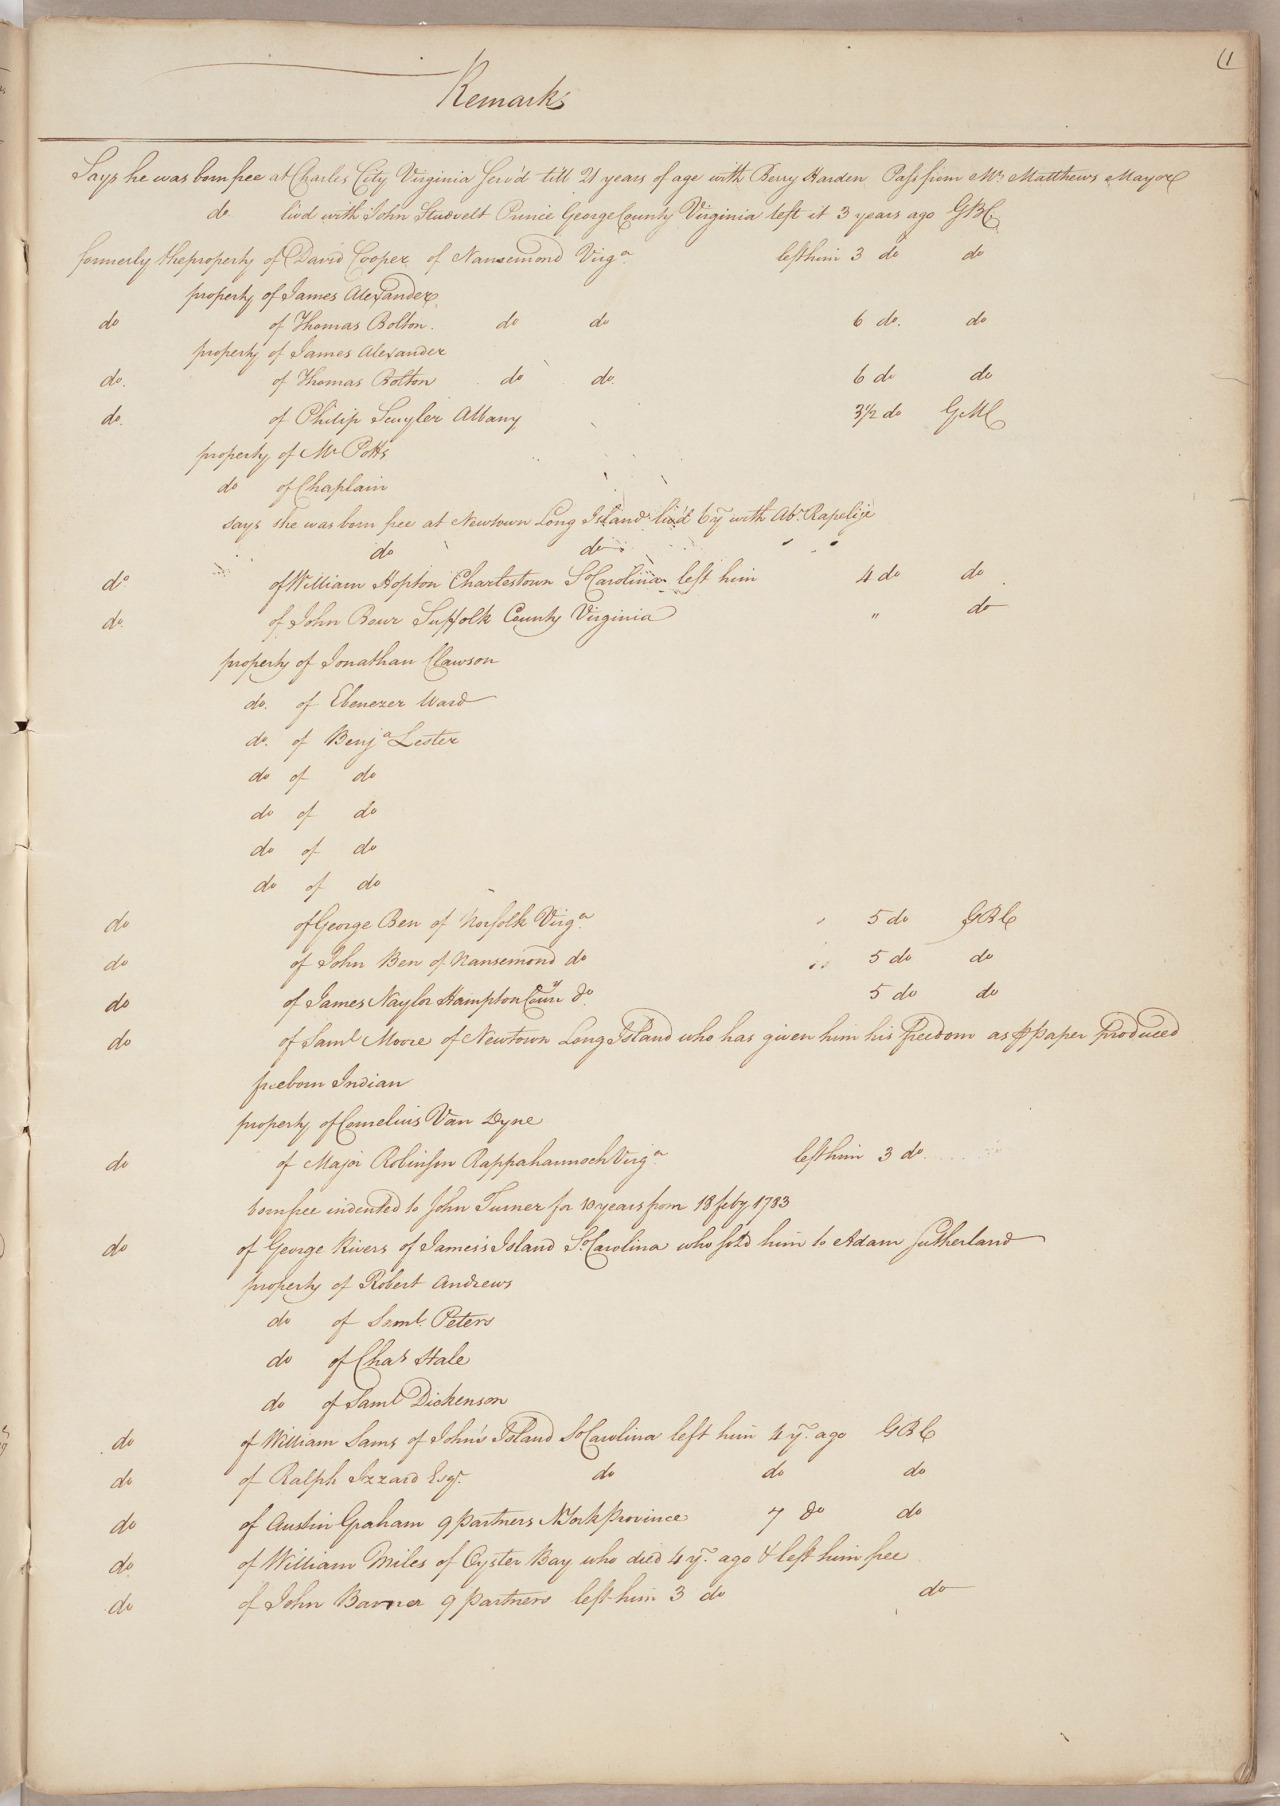 (1
Remarks
Says he was born free at Charles City Virginia Serv'd till 21 years of age with Berry Harden Pass from Mr. Matthews Mayor
do liv'd with John Prince George County Virginia left it 3 years ago GBC
formerly the property of David Cooper of Nansemond Virga. left him 3 do do
property of James Alexander
do of Thomas Bolton. do do 6 do. do
property of James Alexander
do. of Thomas Bolton do do. 6 do do
do. of Philip Scuyler Albany 3½ do GMC
property of Mr Potts
do of Chaplain
says she was born free at Newtown Long Island liv'd 6 y with Abm. Rapelije
do do
do of William Hopton Charlestown So Carolina left him 4 do do
do. of John Bowr Suffolk County Virginia " do
property of Jonathan Clawson
do. of Ebenezer Ward
do. of Benja Lester
do of do
do of do
do of do
do of do
do of George Ben of Norfolk Virga. 5 do GBC
do of John Ben of Nansemond do 5 do do
do of James Naylor Hampton Couny do. 5 do do
do of Saml Moore of Newtown Long Island who has given him his freedom as ⅌ paper produced
freeborn Indian
property of Cornelius Van Dyne
do of Major Robinson Rappahannoch Virga. left him 3 do.
born free indented to John Turner for 10 years from 18 feby 1783
do of George Rivers of James's Island So. Carolina who sold him to Adam Sutherland
property of Robert Andrews
do of Saml. Peters
do of Chas Hale
do of Saml Dickenson
do of William Sams of John's Island So Carolina left him 4 ys. ago GBC
do of Ralph Izzard Esqr. do do do
do of Austin Graham 9 partners N York Province 7 do do
do. of William Miles of Oyster Bay who died 4 ys. ago & left him free
do of John Barner 9 partners left him 3 do do